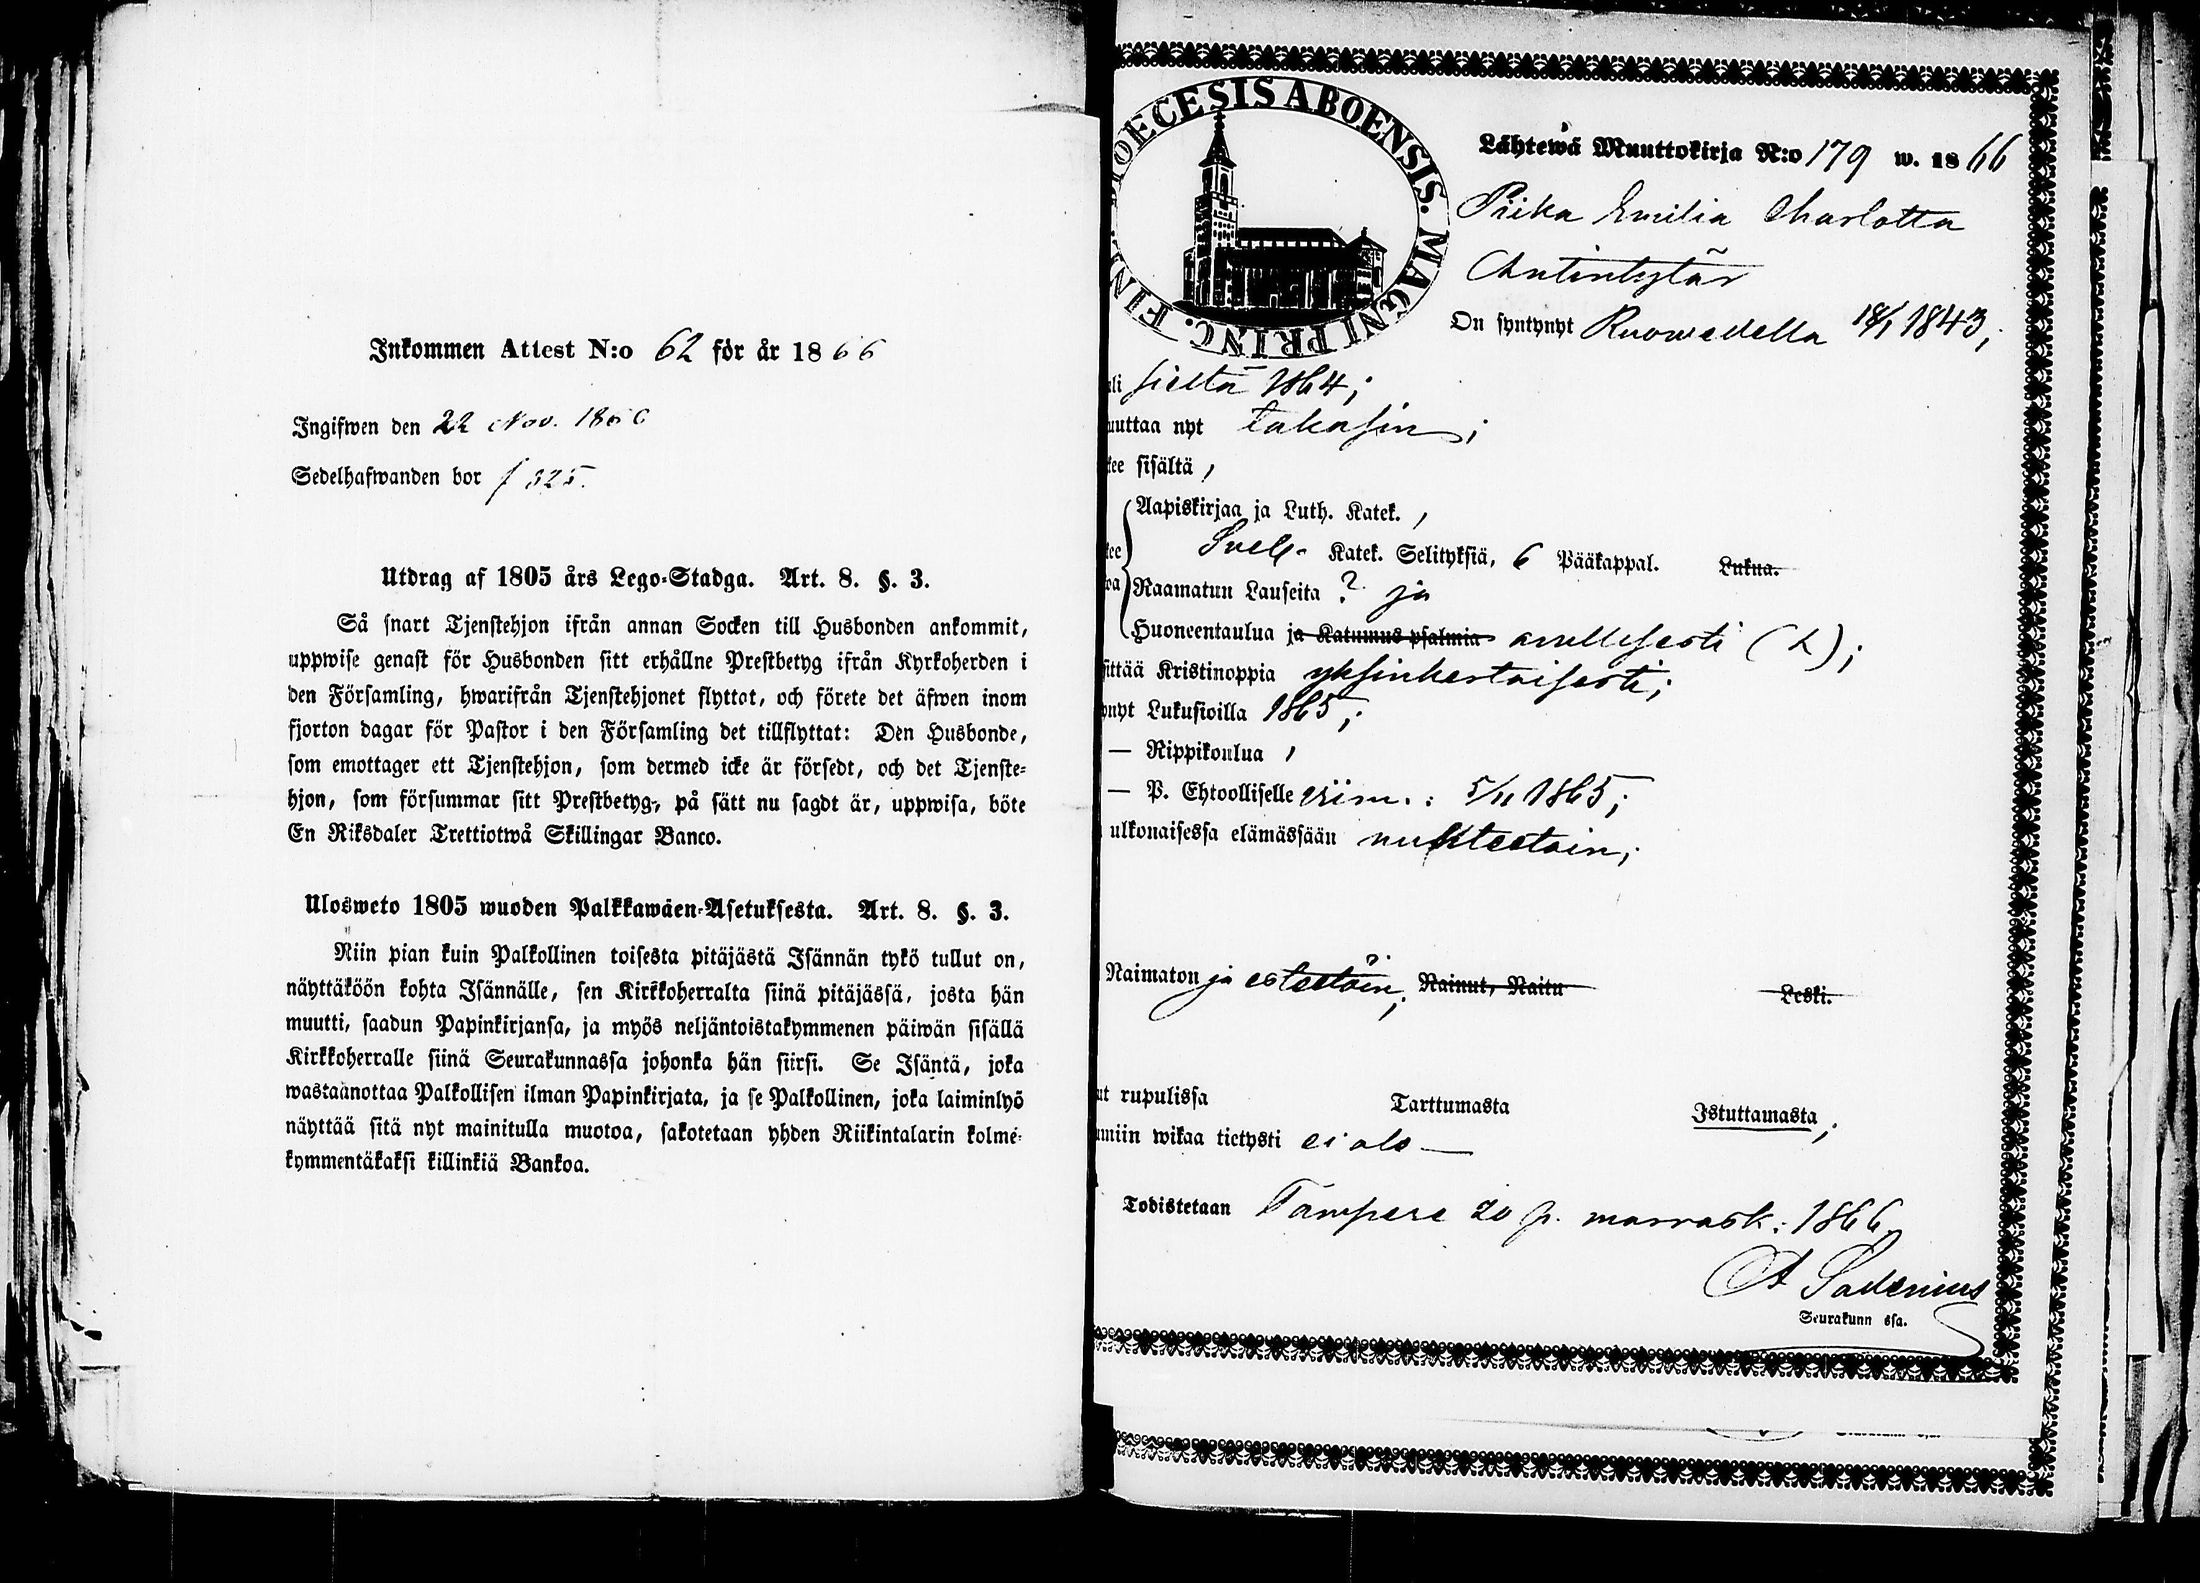 Inkommen Attest N:o 62 för år 1866
Ingifwen den 22 Nov. 1866
Sedelhafwanden bor f 325.
Utdrag af 1805 års Lego-Stadga. Art. 8. §. 3.
Så snart Tjenstehjon ifrån annan Socken till Husbonden ankommit,
uppwise genast för Husbonden sitt erhållne Prestbetyg ifrån Kyrkoherden i
den Församling, hwarifrån Tjenstehjonet flyttat, och förete det äfwen inom
fjorton dagar för Pastor i den Församling det tillflyttat: Den Husbonde,
som emottager ett Tjenstehjon, som dermed icke är försedt, och det Tjenste-
hjon, som försummar sitt Prestbetyg, på sätt nu sagdt är, uppwisa, böte
En Riksdaler Trettiotwå Skillingar Banco.
Ulosweto 1805 wuoden Palkkawäen-Asetuksesta. Art. 8. §. 3.
Niin pian kuin Palkollinen toisesta pitäjästä Isännän tykö tullut on,
näyttäköön kohta Isännälle, sen Kirkkoherralta siinä pitäjässä, josta hän
muutti, saadun Papinkirjansa, ja myös neljäntoistakymmenen päiwän sisällä
Kirkkoherralle siinä Seurakunnassa johonka hän siirsi. Se Isäntä, joka
wastaanottaa Palkollisen ilman Papinkirjata, ja se Palkollinen, joka laiminlyö
näyttää sitä nyt mainitulla muotoa, sakotetaan yhden Riikintalarin kolme-
kymmentäkaksi killinkiä Bankoa.
DIOECESIS ABOENSIS. MAGNI PRINC. FIN
Lähtewä Muuttokirja N:o 179 w. 1866
Piika Emilia Charlotta
Antintytär
On syntynyt Ruowedella 18/1 1843;
li sieltä 1864;
uuttaa nyt takasin;
kee sisältä /
Aapiskirjaa ja Luth. Katek. /
kee Sveb. Katek. Selityksiä, 6 Pääkappal. Lukua.
wa Raamatun Lauseita ? ja
Huoneentaulua ja Katumus psalmia avullisesti ( );
sittää Kristinoppia yksinkertaisesti;
ynyt Lukusioilla 1865;
— Rippikoulua /
— P. Ehtoolliselle viim.: 5/11 1865;
ulkonaisessa elämässään nuhteetoin;
Naimaton ja esteetöin; Nainut, Naitu Leski.
ut rupulissa Tarttumasta Istuttamasta;
umiin wikaa tietysti ei ole —
Todistetaan Tampere 20 p. marrask: 1866
A Salenius
Seurakunn ssa.